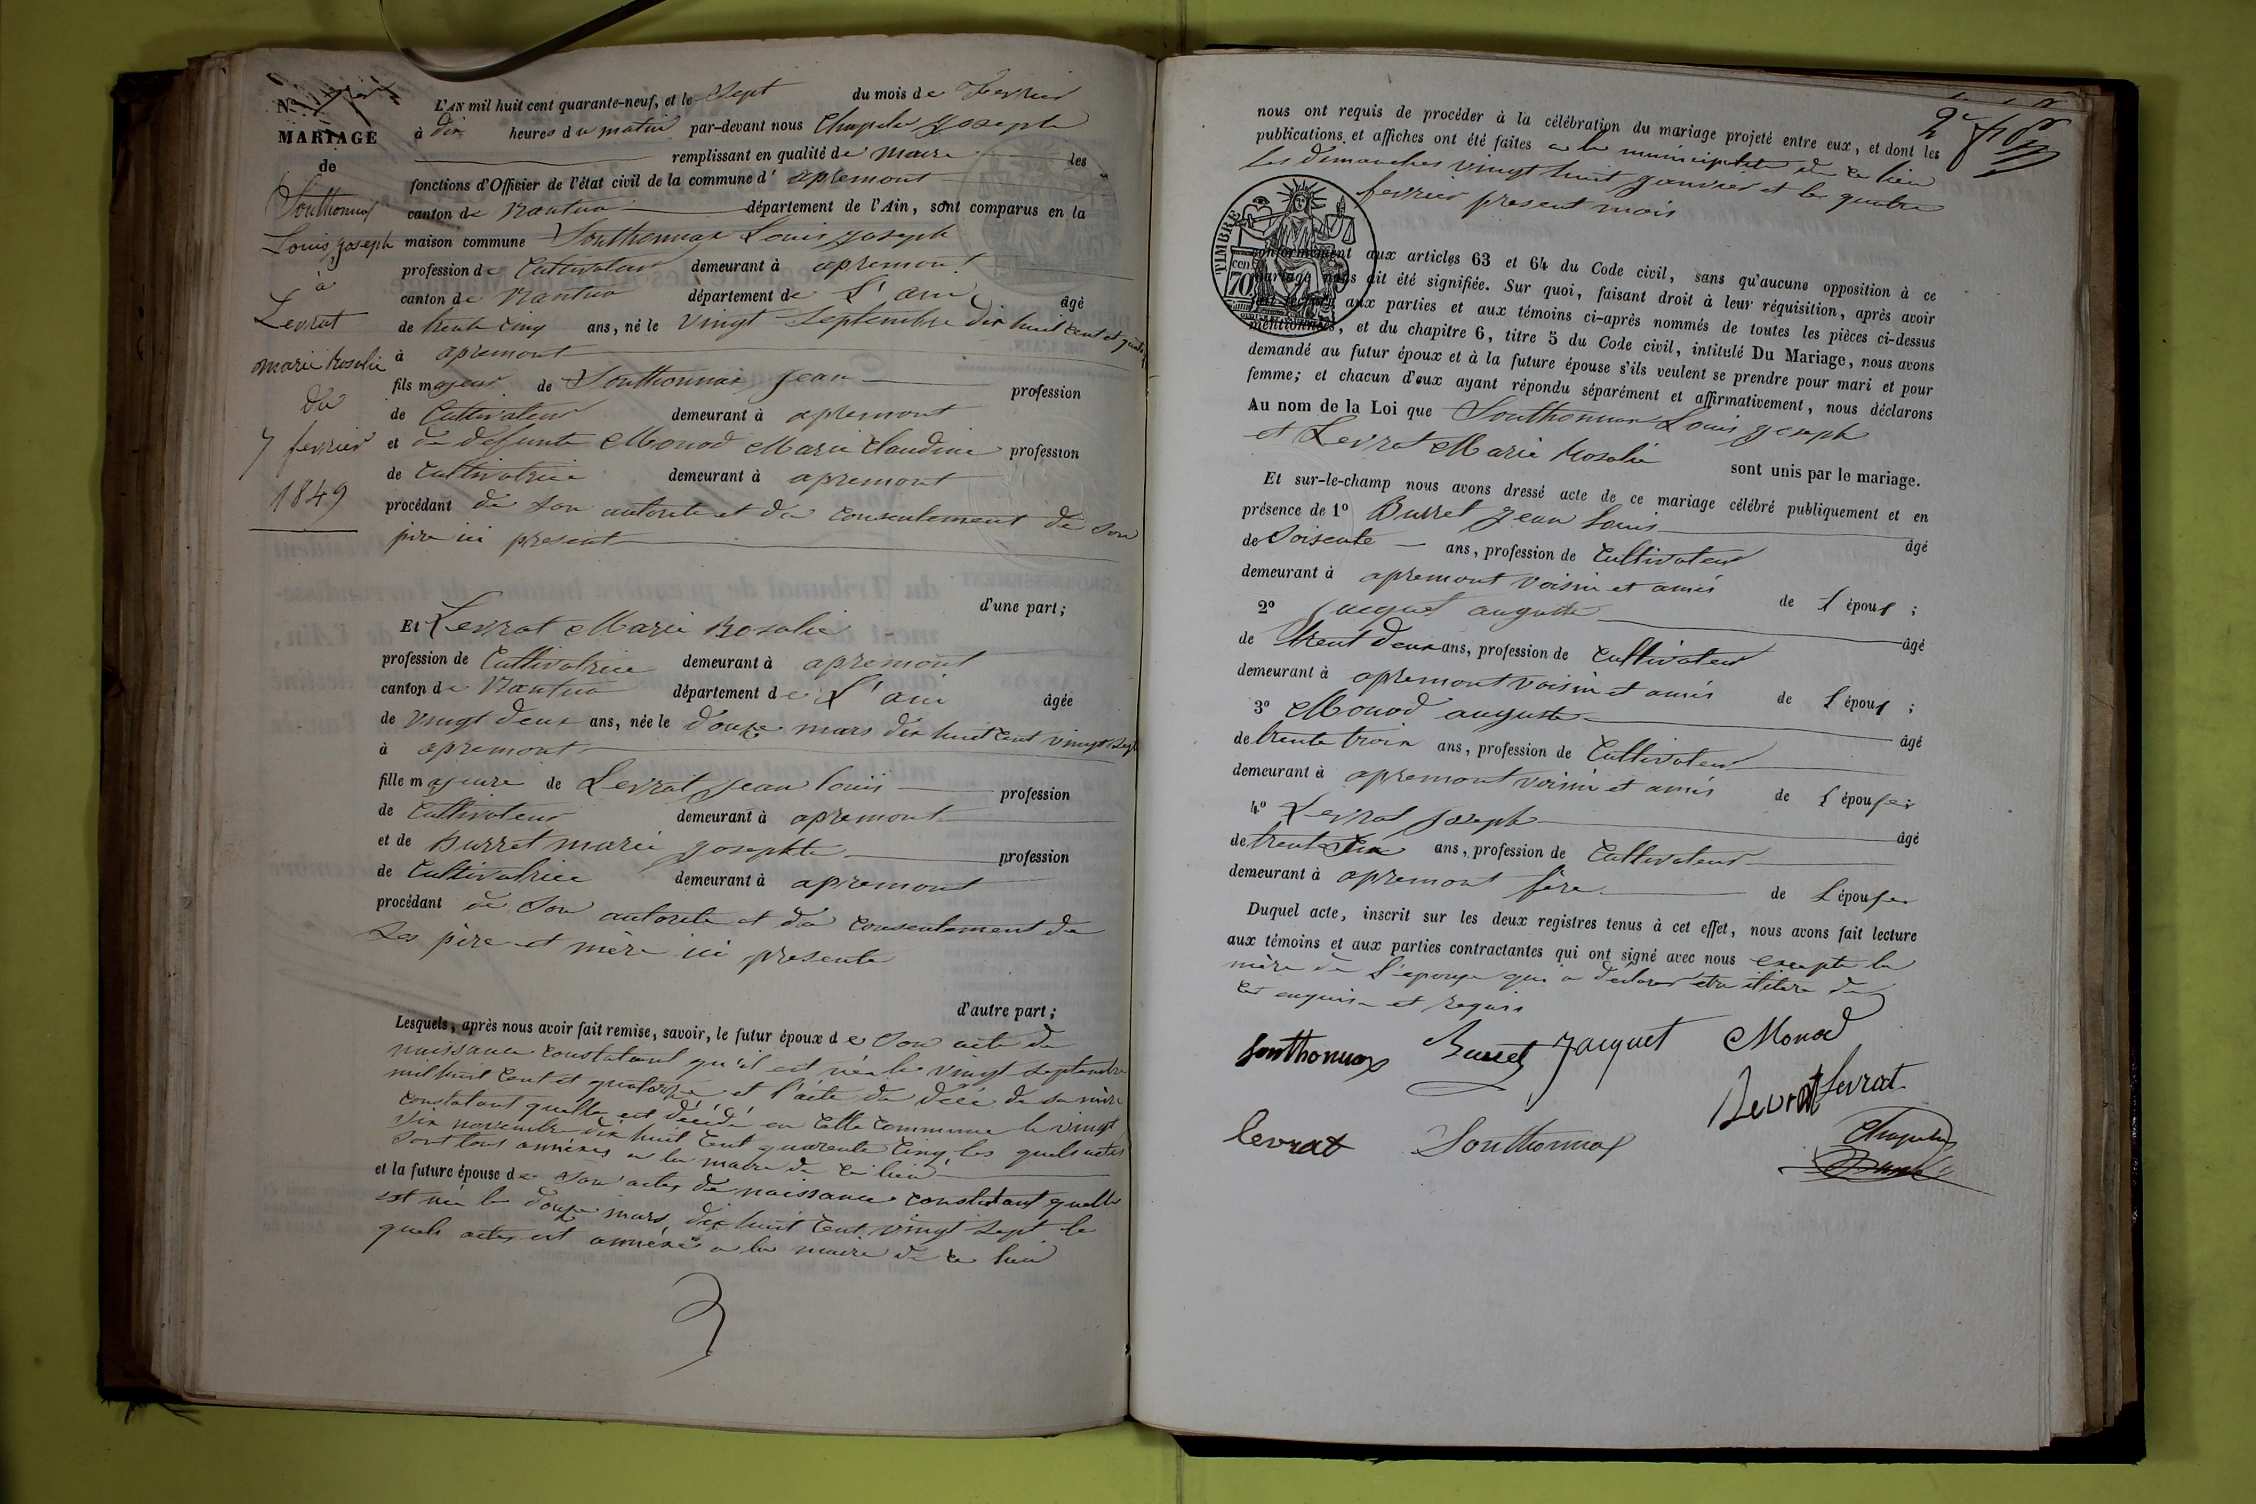 N.º
MARIAGE
de
Southonnax
Louis Joseph
à
Levrat
marie Rosalie
du
7 fevrier
1849
L'AN mil huit cent quarante-neuf, et le Sept du mois de Fevrier
à dix heures du matin par-devant nous Chapelu Joseph
remplissant en qualité de maire les
fonctions d'Officier de l'état civil de la commune d' apremont
canton de Nantua département de l'Ain, sont comparus en la
maison commune Southonnax Louis Joseph
profession de Cultivateur demeurant à apremont
canton de Nantua département de L'ain âgé
de trente cinq ans, né le vingt Septembre dix huit cent et
à apremont
fils majeur de Southonnax Jean profession
de Cultivateur demeurant à apremont
et de defunte Monod Marie Claudine profession
de Cultivatrice demeurant à apremont
procédant de son autorite et du consentement de son
père ici present
d'une part;
Et Levrat Marie Rosalie
profession de Cultivatrice demeurant à apremont
canton de Nantua département de L'ain âgée
de vingt deux ans, née le douze mars dix huit cent vingt sept
à apremont
fille majeure de Levrat Jean louis profession
de Cultivateur demeurant à apremont
et de Burret marie Josephte profession
de Cultivatrice demeurant à apremont
procédant de son autorite et du consentement de
Les père et mère ici presente
d'autre part;
Lesquels, après nous avoir fait remise, savoir, le futur époux de Son acte de
naissance constatant qu'il est née le vingt septembre
mil huit cent et quatorze et l'acte de décé de sa mère
constatant quelle est décédé en cette commune le vingt
six novembre dix huit cent quarente cinq les quels actes
sont tous annéxés a la maire de ce lieu
et la future épouse de Son actes de naissance constatant quelle
est née le douze mars dix huit cent vingt sept le
quels actes est annéxé a la maire de ce lieu
2e
nous ont requis de procéder à la célébration du mariage projeté entre eux, et dont les
publications et affiches ont été faites a la municipalité de ce lieu
les dimanches vingt huit janvier et le quatre
fevrier present mois
TIMBRE
70
conformément aux articles 63 et 64 du Code civil, sans qu'aucune opposition à ce
mariage nous ait été signifiée. Sur quoi, faisant droit à leur réquisition, après avoir
aux parties et aux témoins ci-après nommés de toutes les pièces ci-dessus
mentionnées, et du chapitre 6, titre 5 du Code civil, intitulé Du Mariage, nous avons
demandé au futur époux et à la future épouse s'ils veulent se prendre pour mari et pour
femme; et chacun d'eux ayant répondu séparément et affirmativement, nous déclarons
Au nom de la Loi que Southonnax Louis Joseph
et Levrat Marie Rosalie sont unis par le mariage.
Et sur-le-champ nous avons dressé acte de ce mariage célébré publiquement et en
présence de 1º Burret Jean Louis âgé
de Soisente ans, profession de Cultivateur
demeurant à apremont voisin et amis de l'époux ;
2º Jacquet auguste âgé
de trent deux ans, profession de Cultivateur
demeurant à apremont voisin et amis de l'époux ;
3º Monod auguste âgé
de trente trois ans, profession de Cultivateur
demeurant à apremont voisin et amis de l'épouse
4º Levrat Joseph âgé
de trente ans, profession de Cultivateur
demeurant à apremont frère de L'épouse
Duquel acte, inscrit sur les deux registres tenus à cet effet, nous avons fait lecture
aux témoins et aux parties contractantes qui ont signé avec nous excepte la
mère de L'épouse qui a declaré être de
ce enquise et requis
Southonnax Burret Jacquet Monod
Levrat Levrat
levrat Southonnax
Chapelu